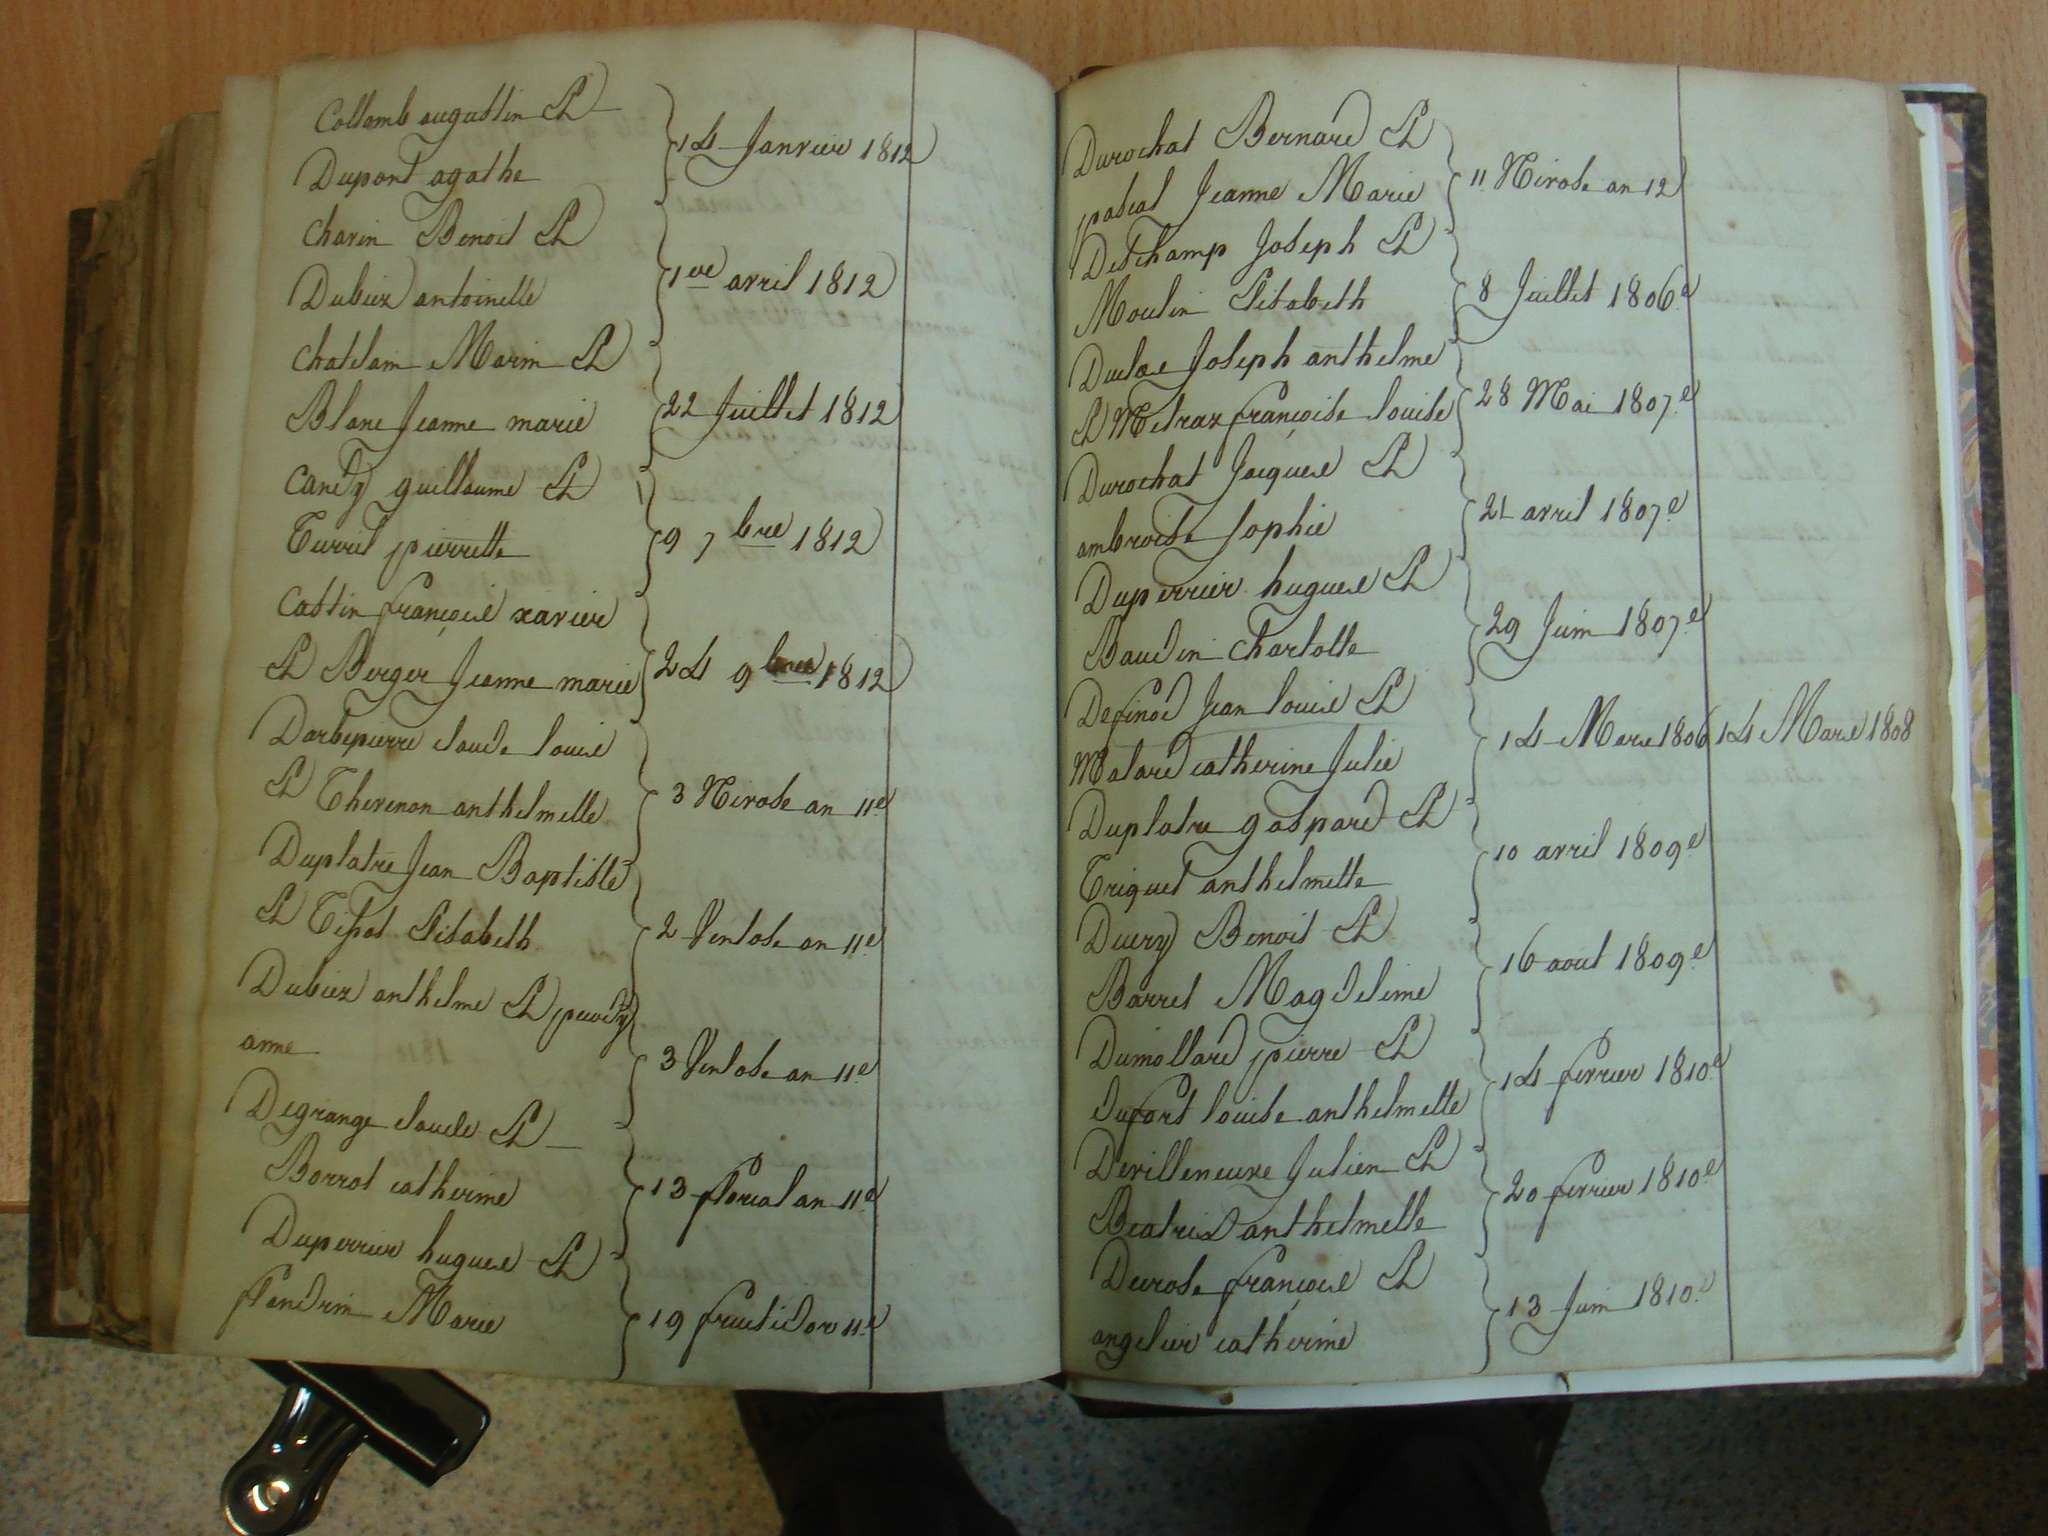 Collomb augustin Et
14 Janvier 1812
Dupont agathe
Chavin Benoit Et
1er avril 1812
Dubiez antoinette
Chatelain Marin Et
22 Juillet 1812
Blanc Jeanne marie
Candy guillaume Et
9 7bre 1812
Turril pierrette
Cattin françois xavier
Et Berger Jeanne marie
24 9bre 1812
Darbepierre claude louis
Et Thevenon anthelmette
3 Nivose an 11e
Duplatre Jean Baptiste
Et Tissot Elisabeth
2 Ventose an 11e
Dubiez anthelme Et
anne
3 Ventose an 11e
Degrange claude Et
Borrot catherine
13 floreal an 11e
Duperrier hugues Et
flandrin Marie
19 fructidor 11e
Durochat Bernard Et
pascal Jeanne Marie
11 Nivose an 12
Deschamp Joseph Et
Moulin Elisabeth
8 Juillet 1806e
Duclos Joseph anthelme
Et Metraz françoise louise
28 Mai 1807e
Durochat Jacques Et
ambroise Sophie
21 avril 1807e
Duperrier hugues Et
Baudin Charlotte
29 Juin 1807e
Definod Jean louis Et
Malard catherine Julie
14 Mars 1806 14 Mars 1808
Duplatre gaspard Et
Triquet anthelmette
10 avril 1809e
Ducry Benoit Et
Barret Magdeleine
16 aout 1809e
Dumollard pierre Et
dufort louise anthelmette
14 fevrier 1810e
Devilleneuve Julien Et
Beatrix anthelmette
20 fevrier 1810e
Durose françois Et
angelier catherine
13 Juin 1810e